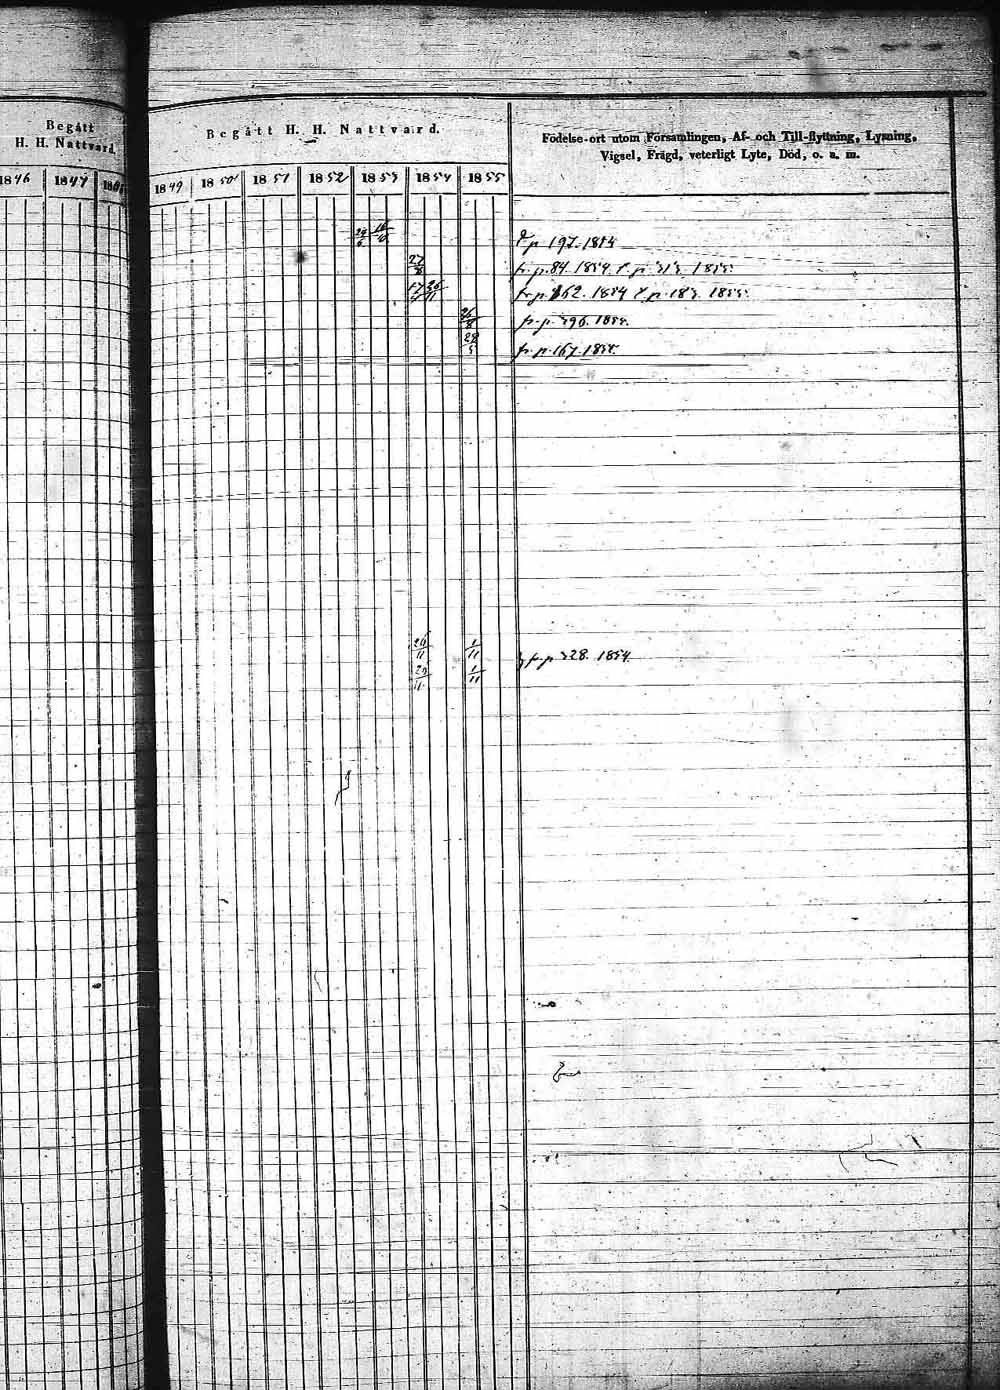 Begått
H. H. Nattvard.
1846 1847
Begått H. H. Nattvard.
1849 1850 1851 1852 1853 1854 1855
Födelse-ort utom Församlingen, Af- och Till-flyttning, Lysning,
Vigsel, Frägd, veterligt Lyte, Död, o. s. m.
p. 197. 1854
27/8 fr. p. 84. 1854 p. 1855.
26/11 1854 p. 183. 1855.
fr. p. 396. 1855.
28/5 fr. p. 167. 1855.
26/11 1/11 fr. p. 328. 1854.
1/11